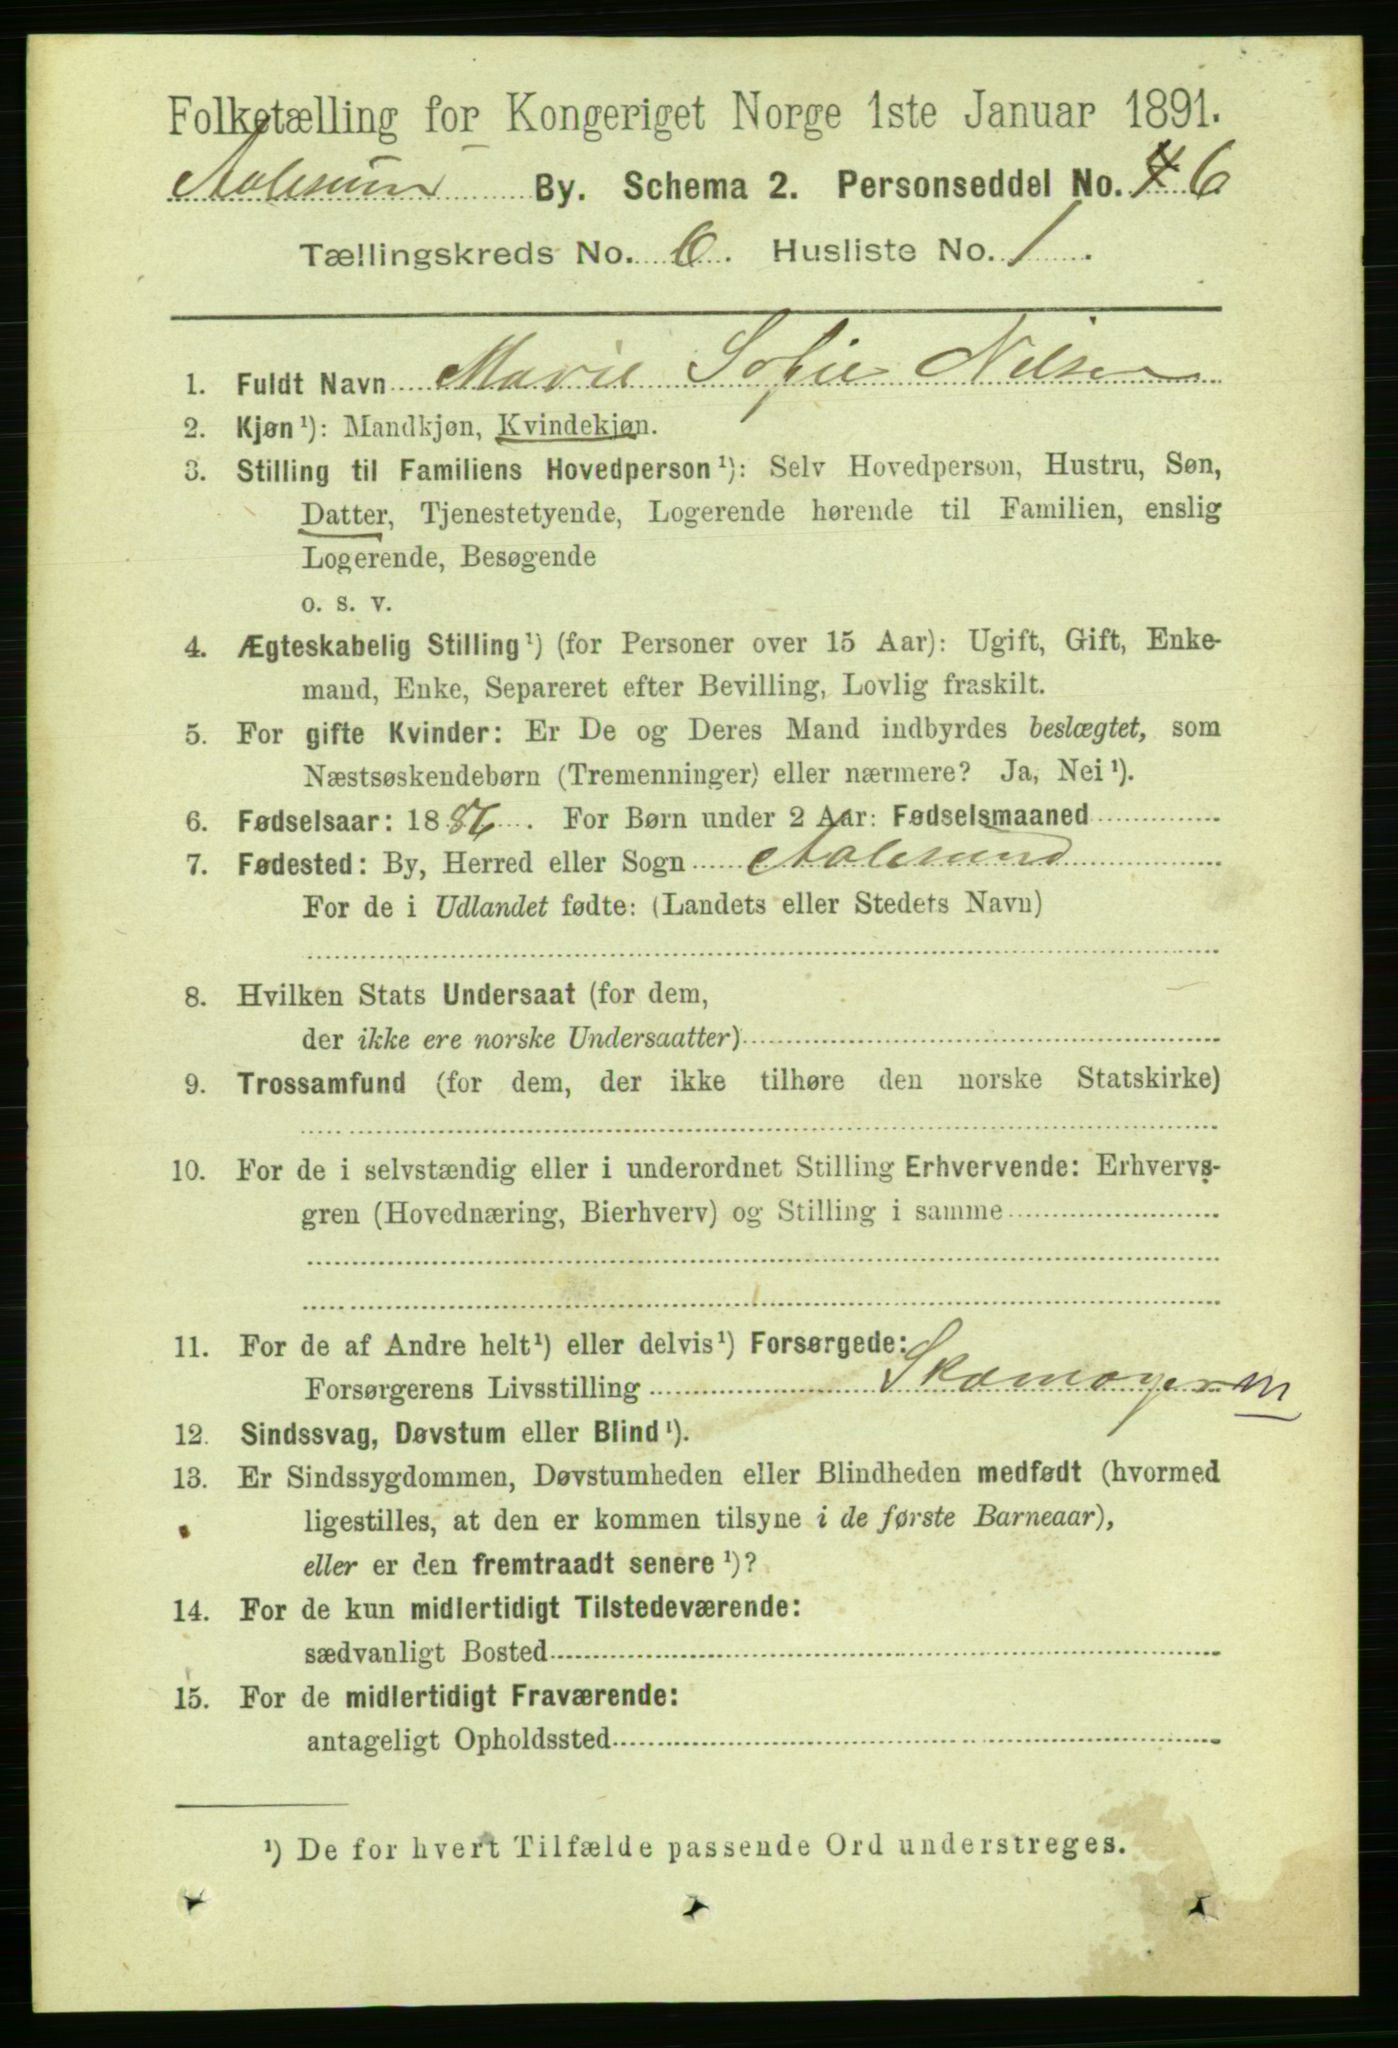 Folketælling for Kongeriget Norge 1ste Januar 1891.
Aalesund By. Schema 2. Personseddel No. 6
Tællingskreds No. 6. Husliste No. 1.
1. Fuldt Navn Marie Sofie Nilsen
2. Kjøn¹): Mandkjøn, Kvindekjøn.
3. Stilling til Familiens Hovedperson¹): Selv Hovedperson, Hustru, Søn,
Datter, Tjenestetyende, Logerende hørende til Familien, enslig
Logerende, Besøgende
o. s. v.
4. Ægteskabelig Stilling¹) (for Personer over 15 Aar): Ugift, Gift, Enke-
mand, Enke, Separeret efter Bevilling, Lovlig fraskilt.
5. For gifte Kvinder: Er De og Deres Mand indbyrdes beslægtet, som
Næstsøskendebørn (Tremenninger) eller nærmere? Ja, Nei¹).
6. Fødselsaar: 1886. For Børn under 2 Aar: Fødselsmaaned
7. Fødested: By, Herred eller Sogn Aalesund
For de i Udlandet fødte: (Landets eller Stedets Navn)
8. Hvilken Stats Undersaat (for dem,
der ikke ere norske Undersaatter)
9. Trossamfund (for dem, der ikke tilhøre den norske Statskirke)
10. For de i selvstændig eller i underordnet Stilling Erhvervende: Erhvervs-
gren (Hovednæring, Bierhverv) og Stilling i samme
11. For de af Andre helt¹) eller delvis¹) Forsørgede:
Forsørgerens Livsstilling Skomager m
12. Sindssvag, Døvstum eller Blind¹).
13. Er Sindssygdommen, Døvstumheden eller Blindheden medfødt (hvormed
ligestilles, at den er kommen tilsyne i de første Barneaar),
eller er den fremtraadt senere¹)?
14. For de kun midlertidigt Tilstedeværende:
sædvanligt Bosted
15. For de midlertidigt Fraværende:
antageligt Opholdssted
¹) De for hvert Tilfælde passende Ord understreges.